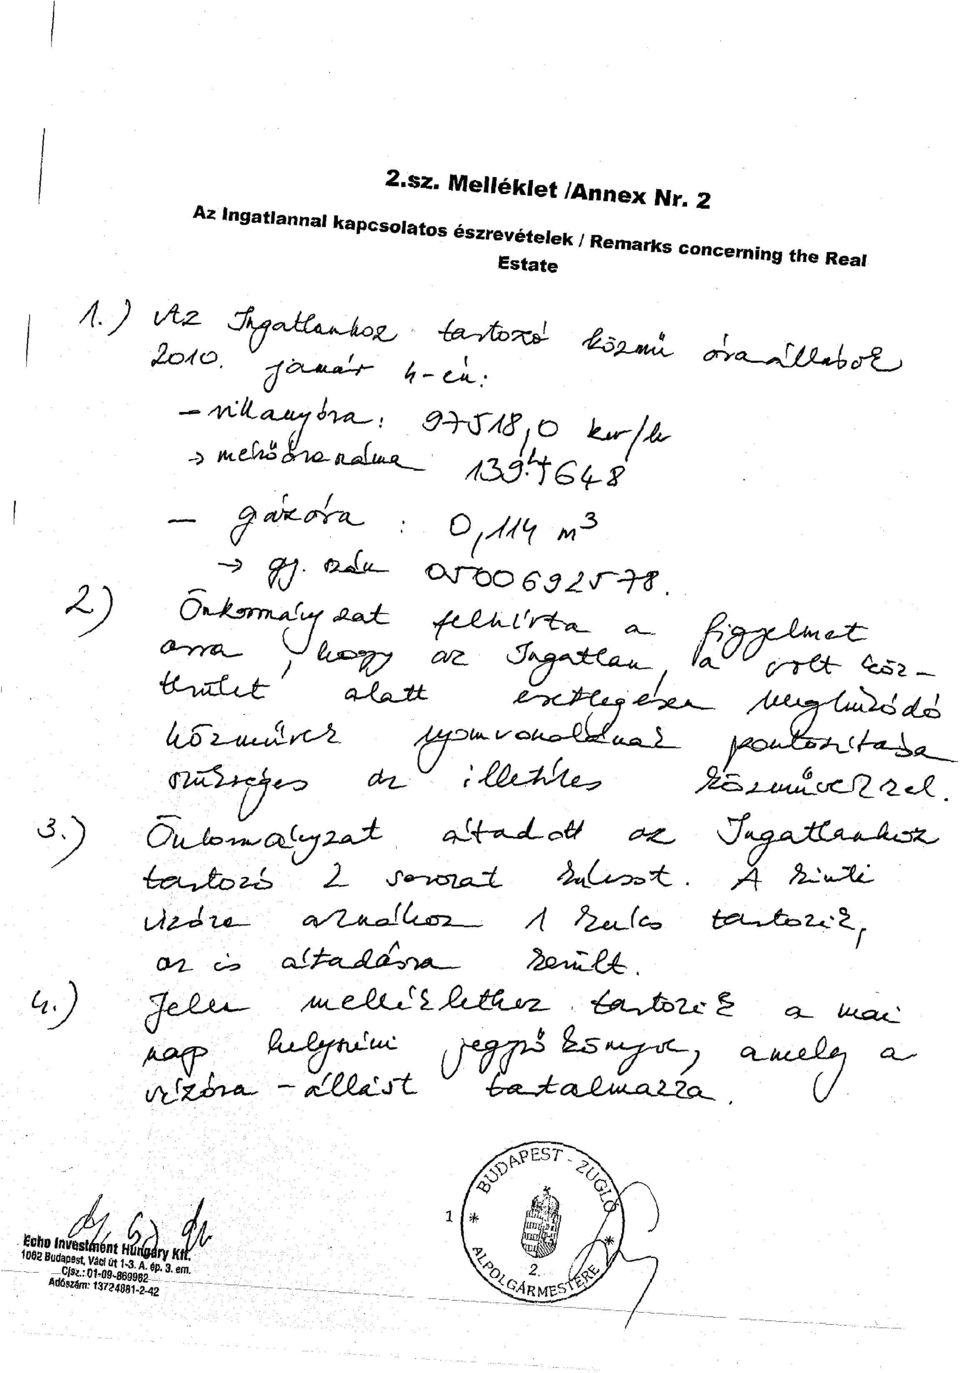 2.sz. Melléklet /Annex Nr. 2
Az Ingatlannal kapcsolatos észrevételek / Remarks concerning the Real
Estate
1.) Az Ingatlanhoz tartozó közmű óraállások
2010. január 4-én:
– villanyóra: 97518,0 kw/h
→ mérőóra száma 1394648
– gázóra : 0,114 m3
→ gy. szám 0500692578.
2) Önkormányzat felhívta a figyelmet
arra, hogy az Ingatlan, a volt köz-
terület alatt esetlegesen meghúzódó
közművek nyomvonalának pontosítása
szükséges az illetékes közművekkel.
3.) Önkormányzat átadott az Ingatlanhoz
tartozó 2 sorozat kulcsot. A kinti
vízóra aknához 1 kulcs tartozik,
az is átadásra került.
4.) Jelen melléklethez tartozik a mai
nap helyszíni jegyzőkönyve, amely a
vízóra – állást tartalmazza.
Echo Investment Hungary Kft.
1062 Budapest, Váci út 1-3. A. ép. 3. em.
Cjsz.: 01-09-869962
Adószám: 13724881-2-42
1
BUDAPEST - ZUGLÓ
* ALPOLGÁRMESTERE *
2.